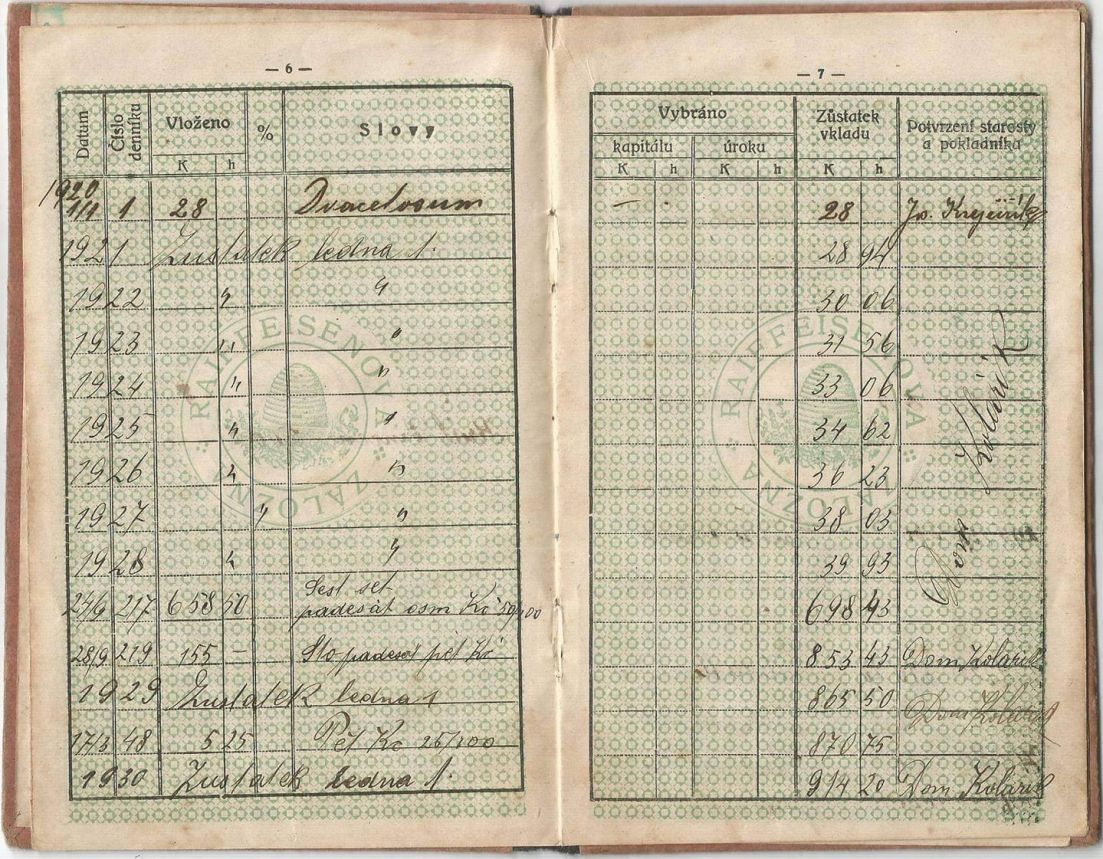 — 6 —
Datum Číslo denníku Vloženo K h % Slovy
1920
1/1 1 28 Dvacetosum
1921 Zustatek ledna 1.
1922 " "
1923 " "
1924 " "
1925 " "
1926 " "
1927 " "
1928 " "
24/6 217 658 50 Šest set
padesát osm Kč 50/100
28/9 219 155 — Sto padesát pět Kč
1929 Zustatek ledna 1
17/3 48 5 25 Pět Kč 25/100
1930 Zustatek ledna 1.
RAIFFEISENOVA ZÁLOŽNA
— 7 —
Vybráno Zůstatek vkladu Potvrzení starosty a pokladníka
kapitálu úroku
K h K h K h
— 28
28 94
30 06
31 56
33 06
34 62
36 23
38 03
39 93
698 43
853 43 Dom. Kolařík
865 50 Dom. Kolařík
870 75
914 20 Dom. Kolařík
Dom. Kolařík
RAIFFEISENOVA ZÁLOŽNA